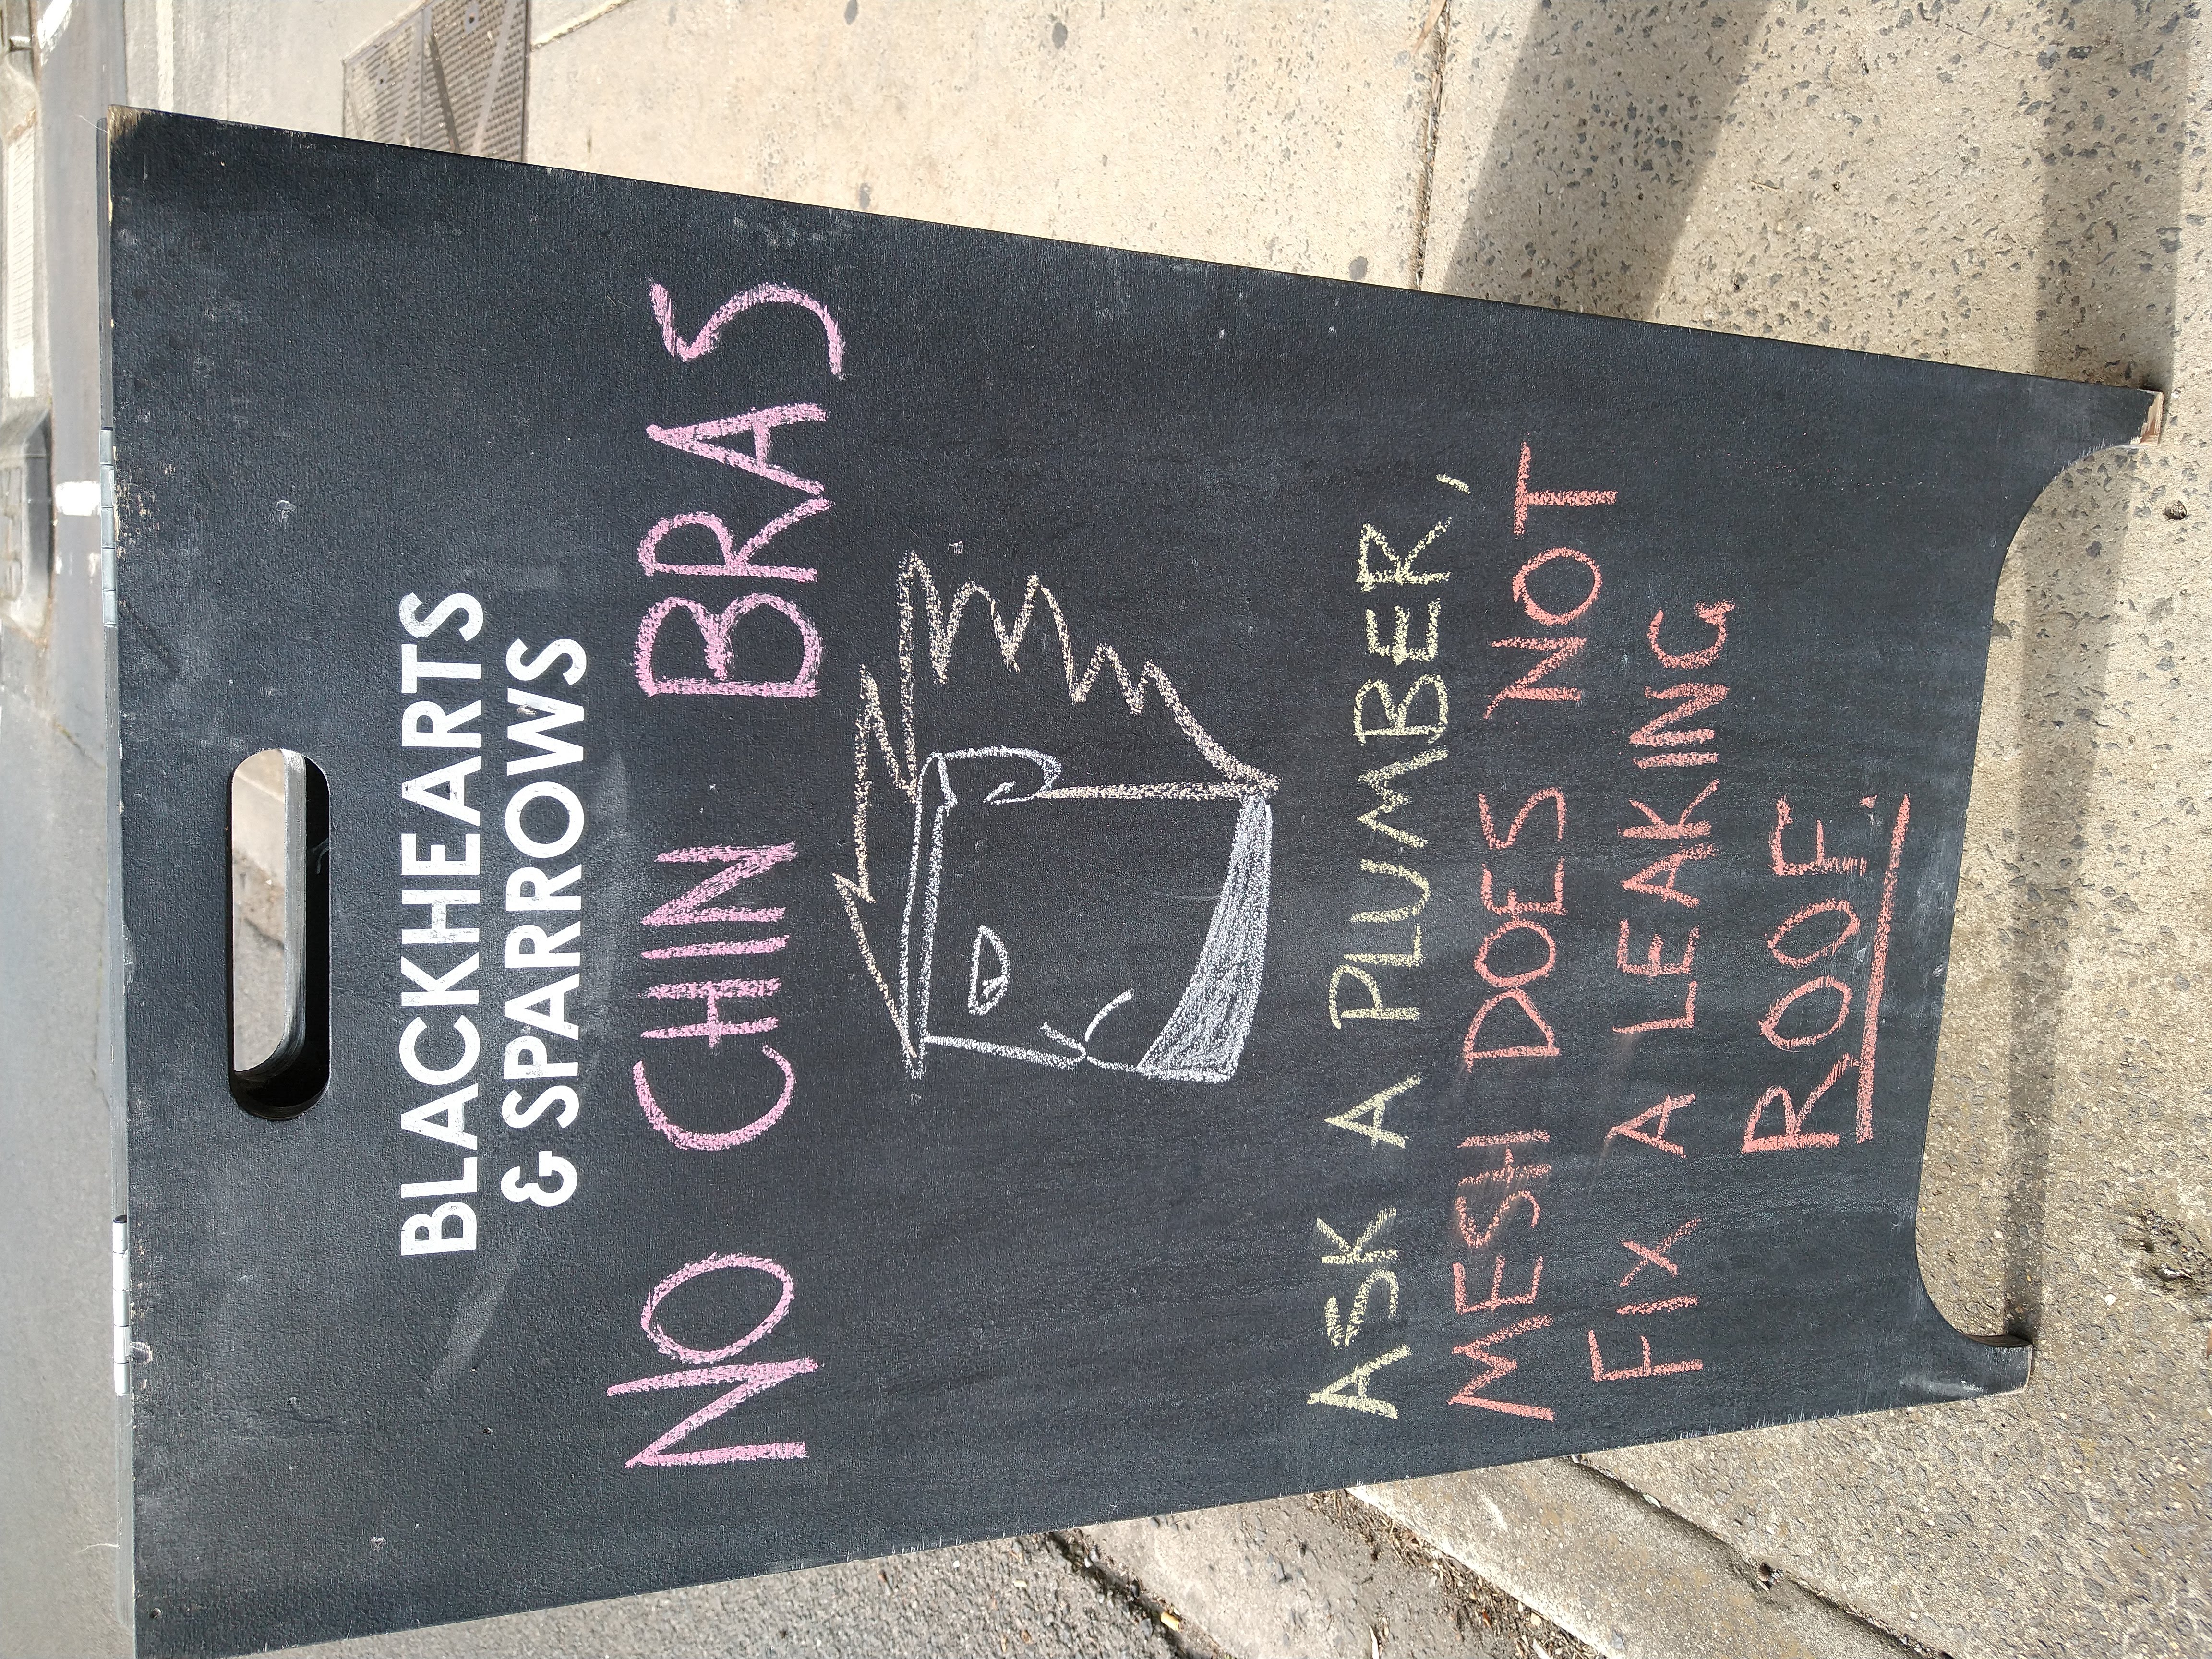 BLACKHEARTS
& SPARROWS
NO CHIN BRAS
ASK A PLUMBER,
MESH DOES NOT
FIX A LEAKING
ROOF.